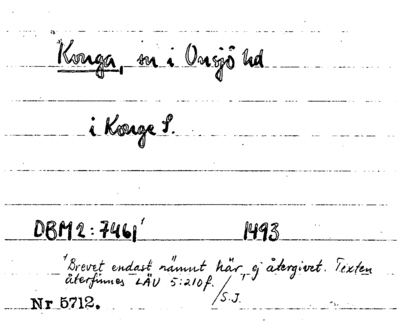 Konga, sn i Onsjö hd
i Konge S.
DBM 2:7461¹ 1493
¹Brevet endast nämnt här, ej återgivet. Texten
återfinnes LÄU 5:210f.
/S.J.
Nr 5712.